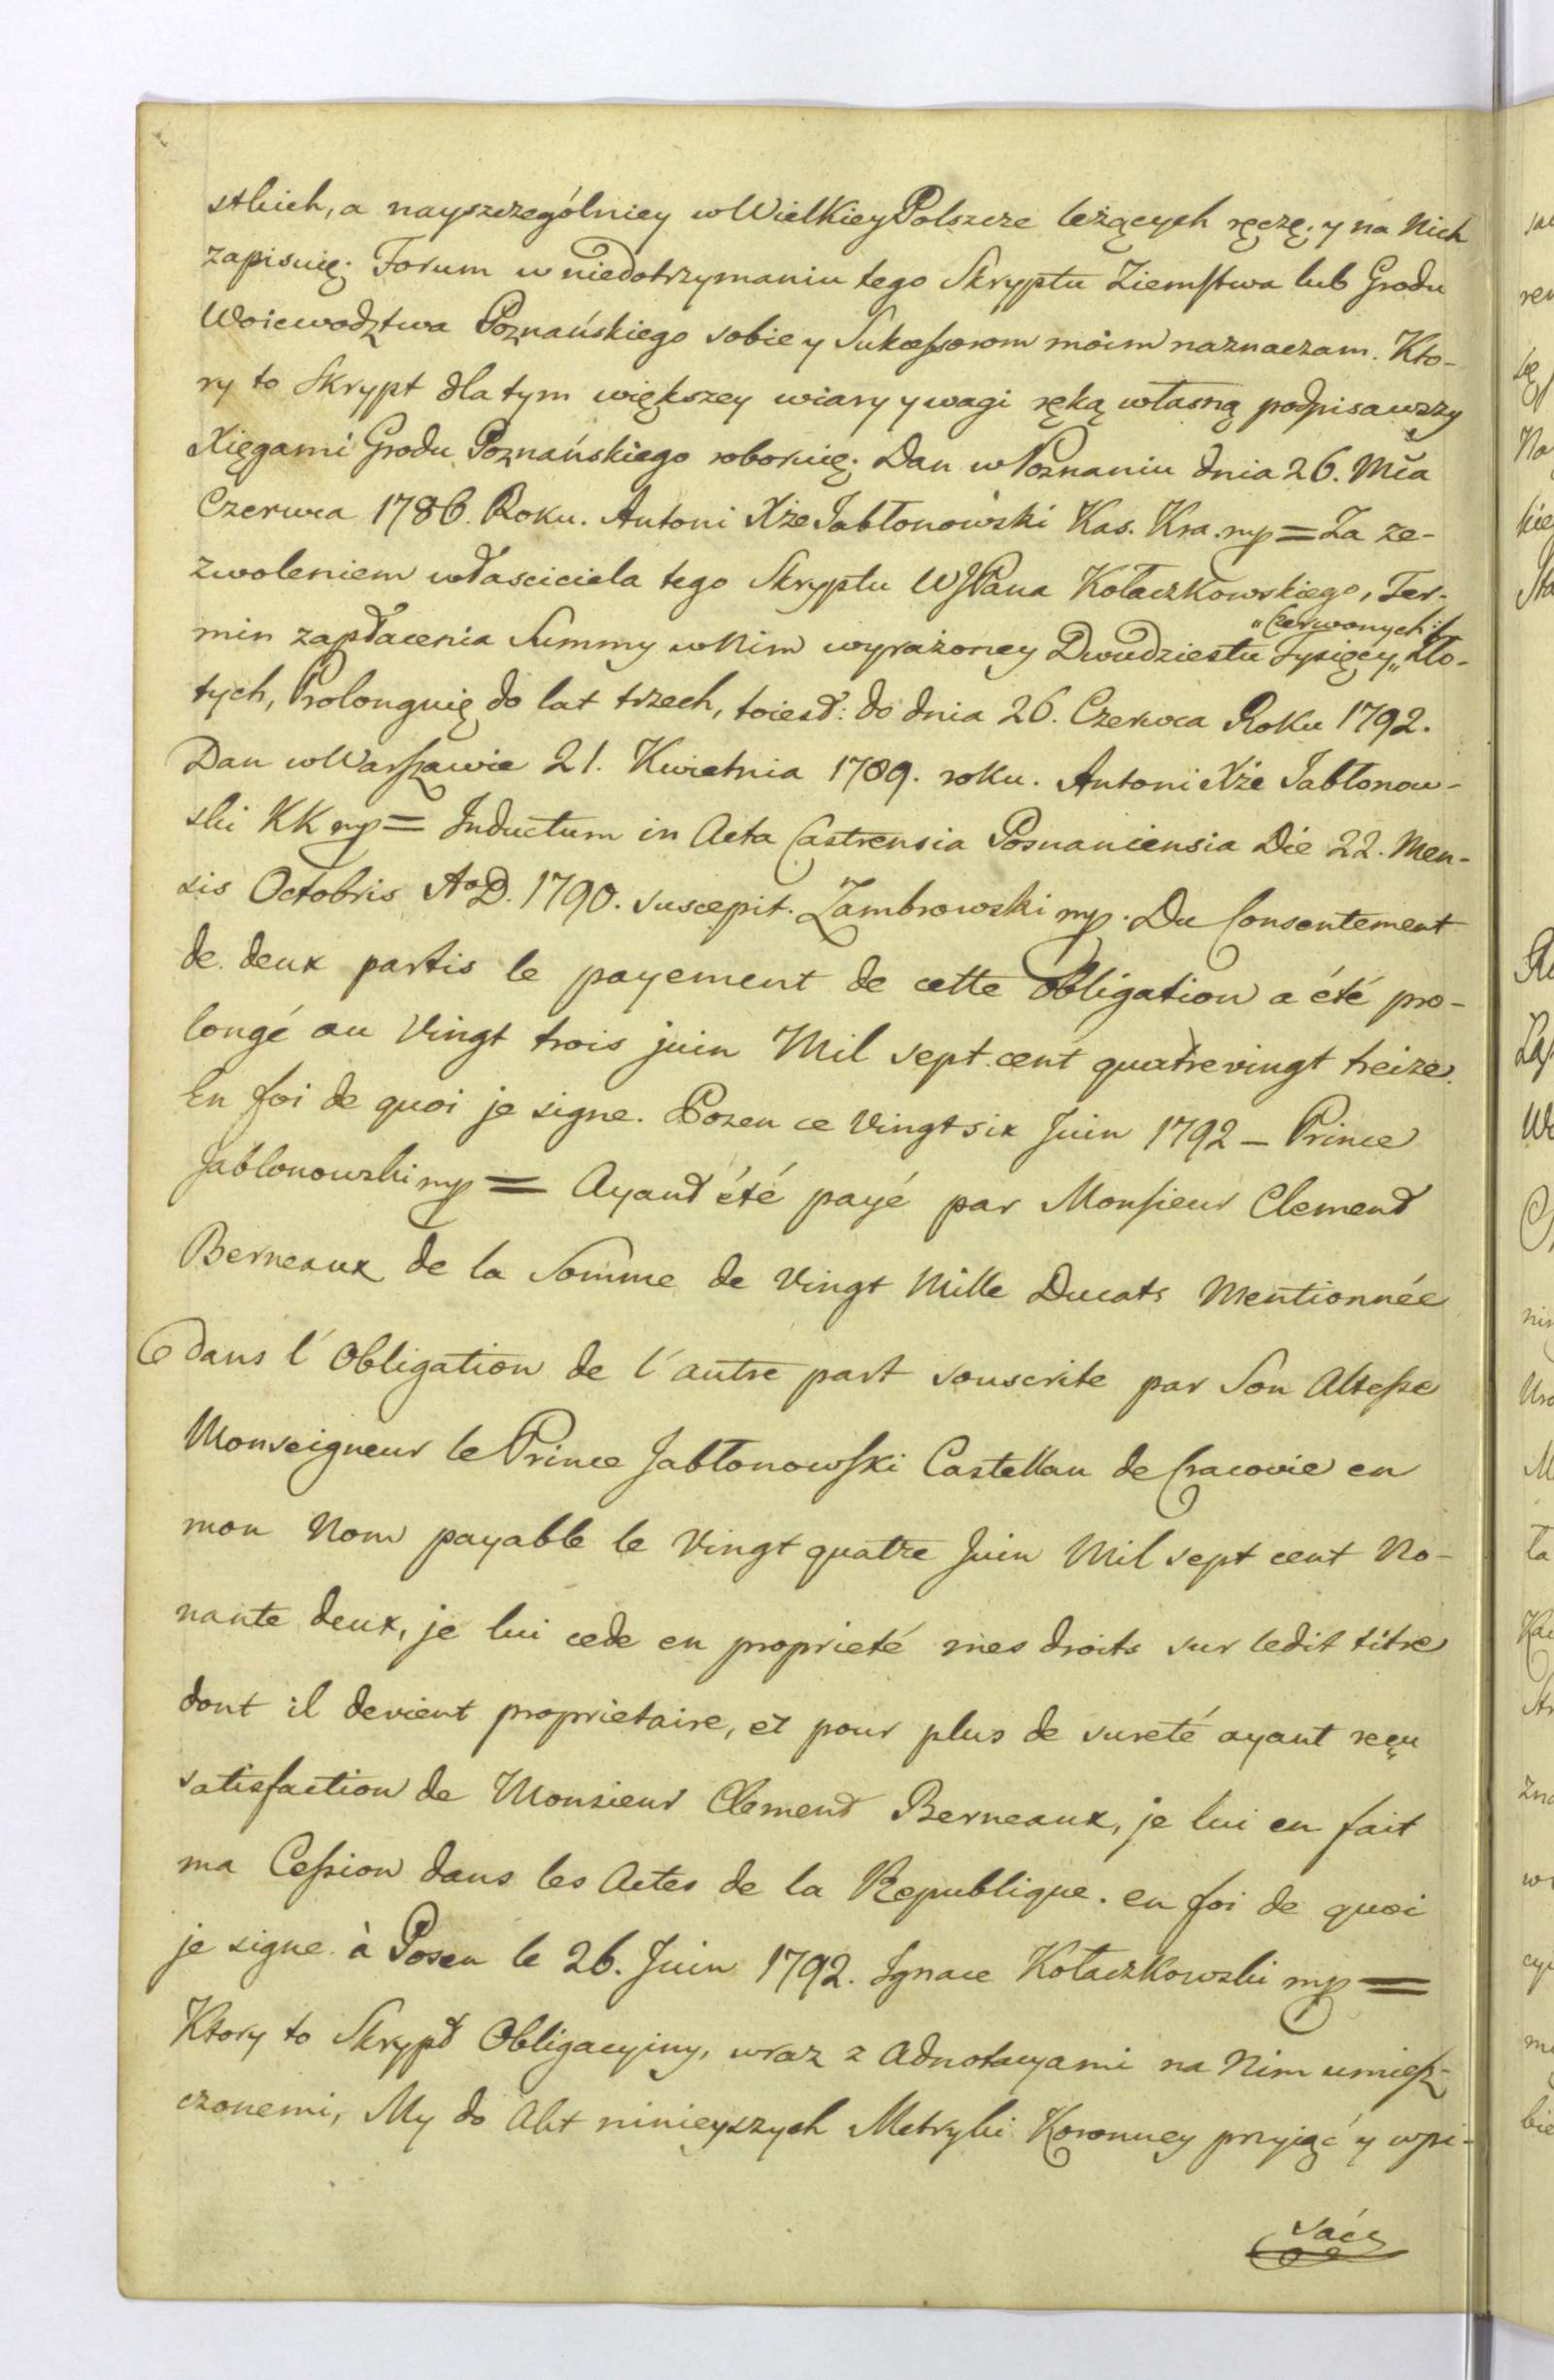 stkich, a nayszczególniey w Wielkiey Polszcze leżących ręczę, y na Nich
zapisuię. Forum w niedotrzymaniu tego Skryptu Ziemstwa lub Grodu
Woiewodztwa Poznańskiego sobie y Sukcessorom moim naznaczam. Kto-
ry to Skrypt dla tym większey wiary y wagi ręką własną podpisawszy
Xięgami Grodu Poznańskiego roboruię. Dan w Poznaniu dnia 26. Mca
Czerwca 1786. Roku. Antoni Xże Jabłonowski Kas. Kra. mp = Za ze-
zwoleniem własciciela tego Skryptu WJPana Kołaczkowskiego, Ter-
min zapłacenia Summy w Nim wyrażoney Dwudziestu Tysięcy „Czerwonych“ Zło-
tych, Prolonguię do lat trzech, toiest: do dnia 26. Czerwca Roku 1792.
Dan w Warszawie 21. Kwietnia 1789. roku. Antoni Xże Jabłonow-
ski KK mp = Inductum in Acta Castrensia Posnaniensia Die 22. Men-
sis Octobris Ao D. 1790. suscepit. Zambrowski mp. Du Consentement
de deux partis le payement de cette Obligation a été pro-
longé au Vingt trois juin Mil sept cent quatrevingt treize.
En foi de quoi je signe. Pozen ce Vingt six Juin 1792 – Prince
Jablonowski mp = Ayant été payé par Monsieur Clement
Berneaux de la Somme de Vingt Mille Ducats Mentionnée
dans l'Obligation de l'autre part souscrite par Son Altesse
Monseigneur le Prince Jabłonowski Castellan de Cracovie en
mon Nom payable le Vingt quatre Juin Mil sept cent No-
nante deux, je lui cede en proprieté mes droits sur ledit titre
dont il devient proprietaire, et pour plus de sureté ayant reçu
satisfaction de Monsieur Clement Berneaux, je lui en fait
ma Cession dans les Actes de la Republique. en foi de quoi
je signe à Posen le 26. Juin 1792. Ignace Kołaczkowski mp =
Ktory to Skrypt Obligacyiny, wraz z Adnotacyami na Nim umiesz-
czonemi, My do Akt ninieyszych Metryki Koronney przyiąć y wpi-
sać